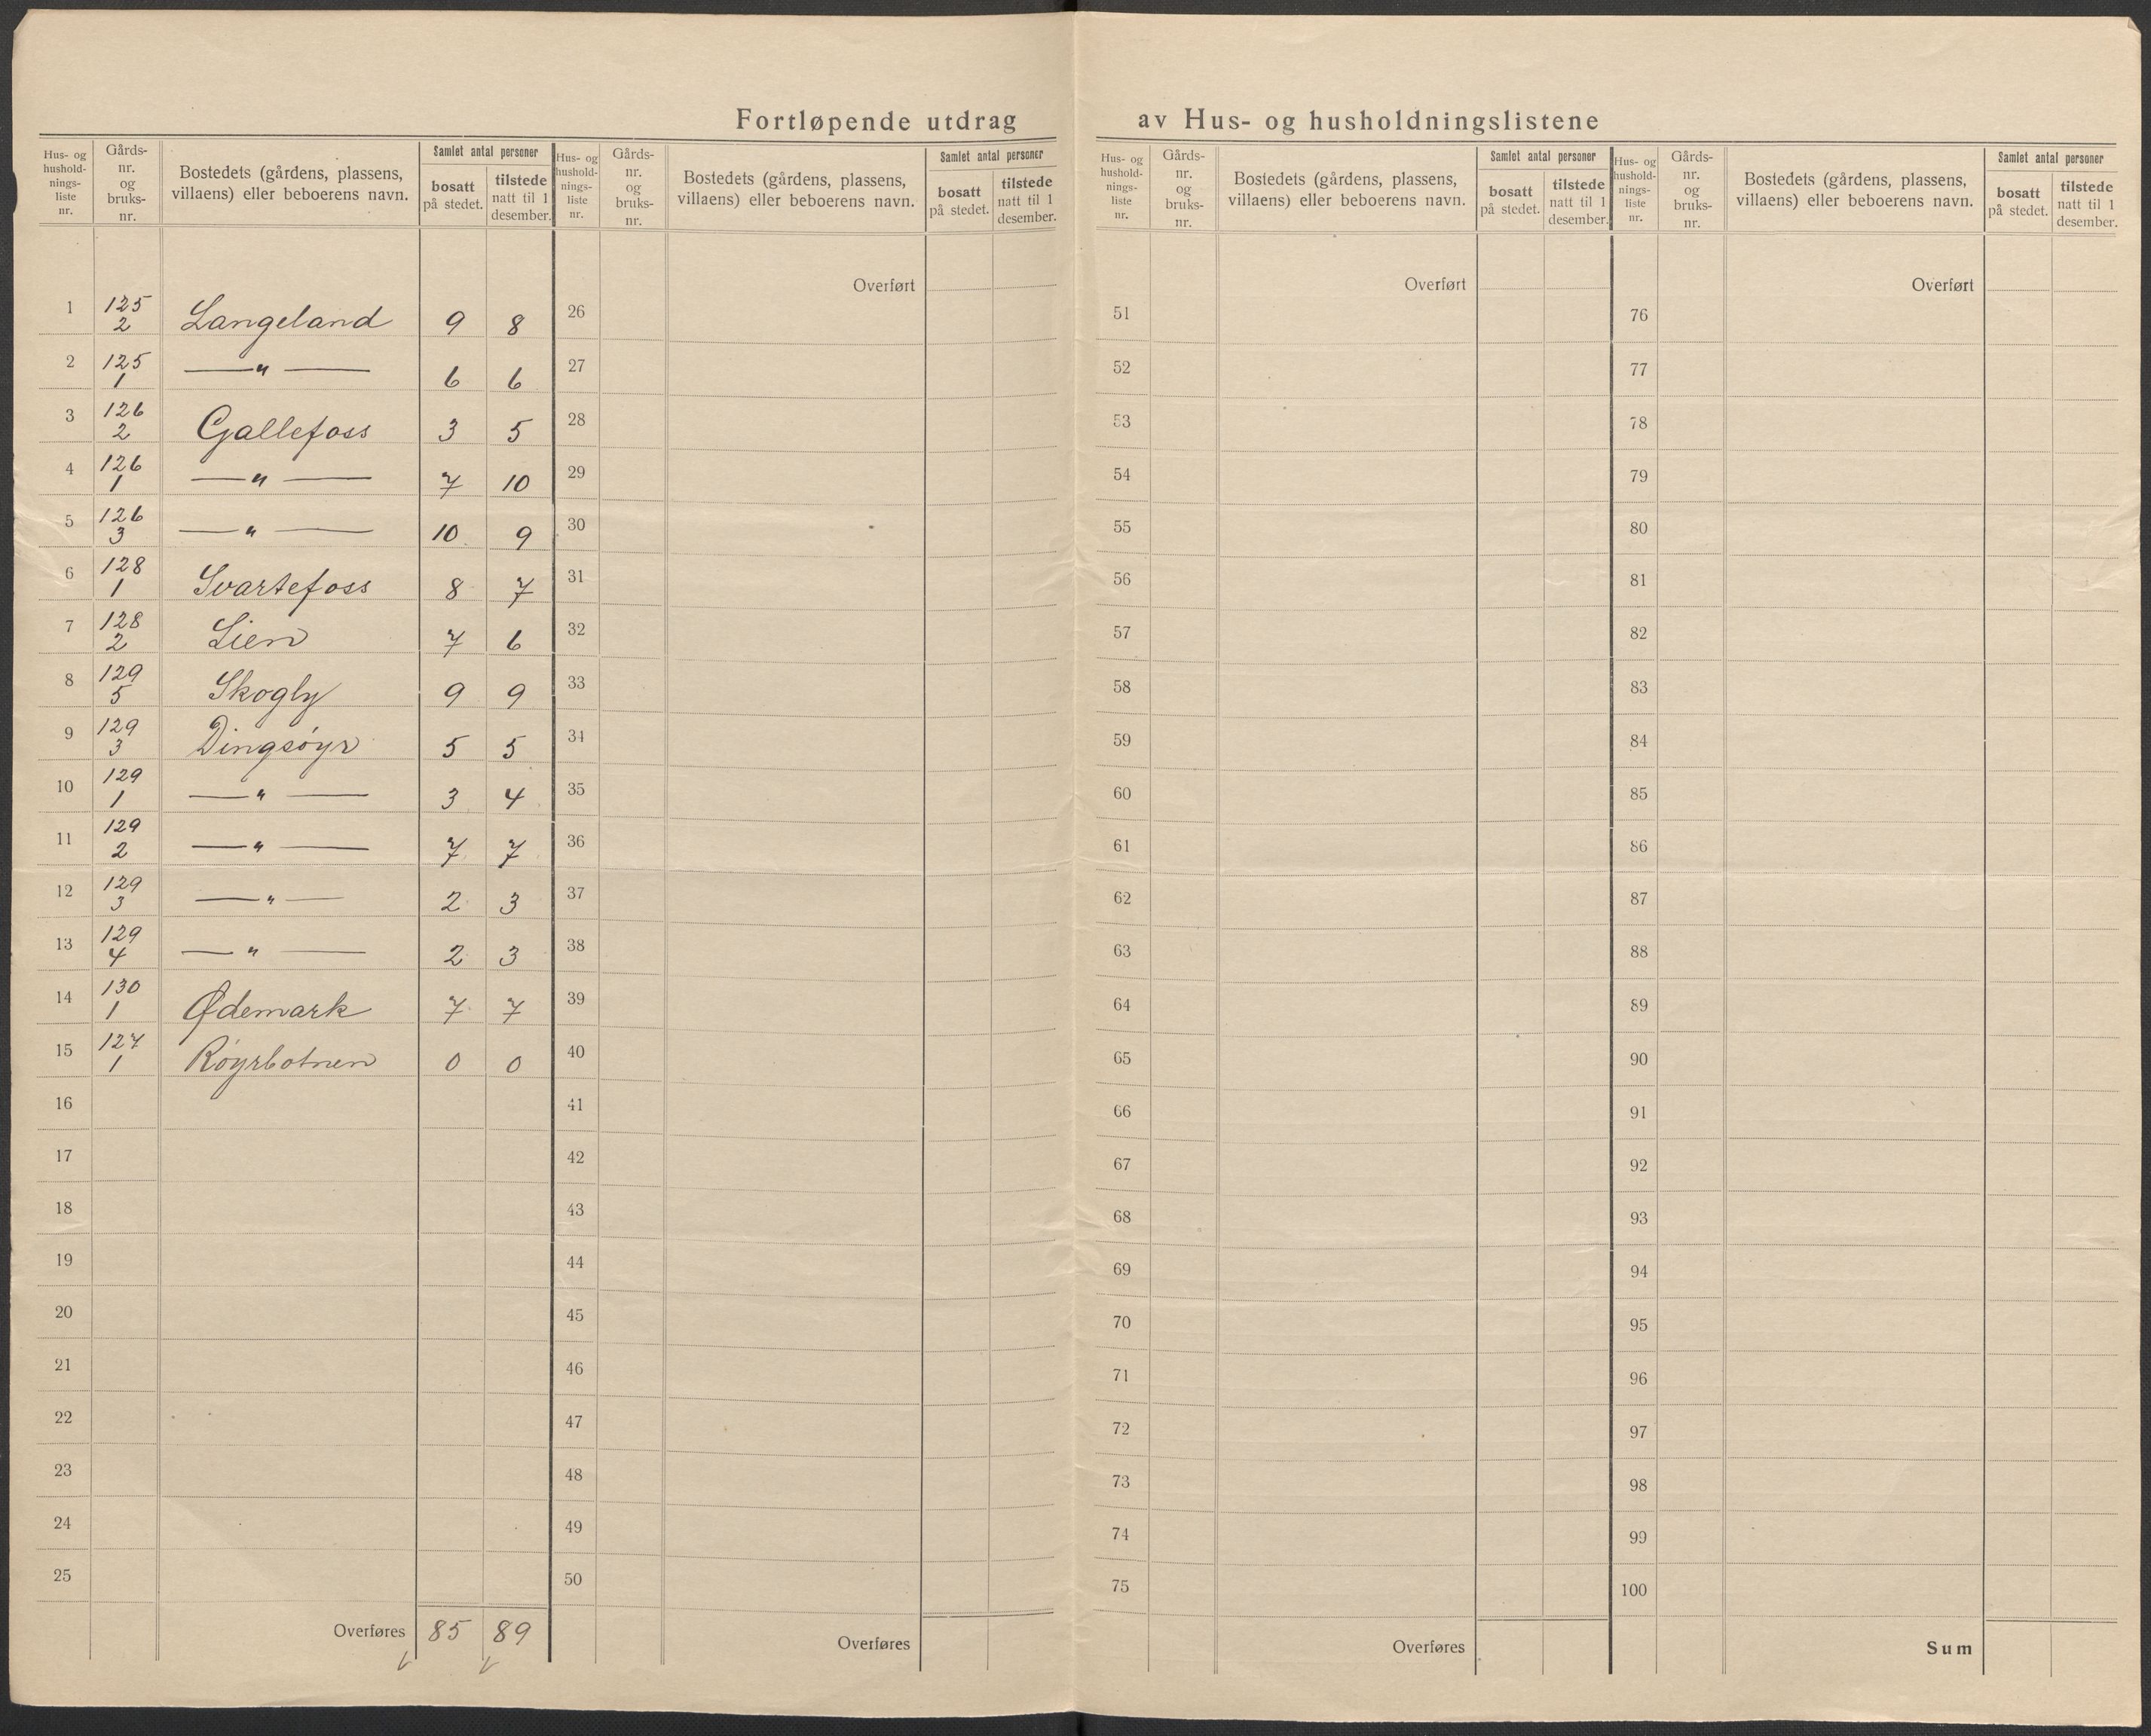 Fortløpende utdrag av Hus- og husholdningslistene
Hus- og hushold-nings-liste nr.
Gårds-nr. og bruks-nr.
Bostedets (gårdens, plassens, villaens) eller beboerens navn.
Samlet antal personer
bosatt på stedet.
tilstede natt til 1 desember.
Hus- og hushold-nings-liste nr.
Gårds-nr. og bruks-nr.
Bostedets (gårdens, plassens, villaens) eller beboerens navn.
Samlet antal personer
bosatt på stedet.
tilstede natt til 1 desember.
Hus- og hushold-nings-liste nr.
Gårds-nr. og bruks-nr.
Bostedets (gårdens, plassens, villaens) eller beboerens navn.
Samlet antal personer
bosatt på stedet.
tilstede natt til 1 desember.
Hus- og hushold-nings-liste nr.
Gårds-nr. og bruks-nr.
Bostedets (gårdens, plassens, villaens) eller beboerens navn.
Samlet antal personer
bosatt på stedet.
tilstede natt til 1 desember.
1 125 2 Langeland 9 8
2 125 1 — " — 6 6
3 126 2 Gallefoss 3 5
4 126 1 — " — 7 10
5 126 3 — " — 10 9
6 128 1 Svartefoss 8 7
7 128 2 Lien 7 6
8 129 5 Skogly 9 9
9 129 3 Dingsöyr 5 5
10 129 1 — " — 3 4
11 129 2 — " — 7 7
12 129 3 — " — 2 3
13 129 4 — " — 2 3
14 130 1 Ødemark 7 7
15 127 1 Röyrbotnen 0 0
16
17
18
19
20
21
22
23
24
25
Overføres 85 89
Overført
26
27
28
29
30
31
32
33
34
35
36
37
38
39
40
41
42
43
44
45
46
47
48
49
50
Overføres
Overført
51
52
53
54
55
56
57
58
59
60
61
62
63
64
65
66
67
68
69
70
71
72
73
74
75
Overføres
Overført
76
77
78
79
80
81
82
83
84
85
86
87
88
89
90
91
92
93
94
95
96
97
98
99
100
Sum